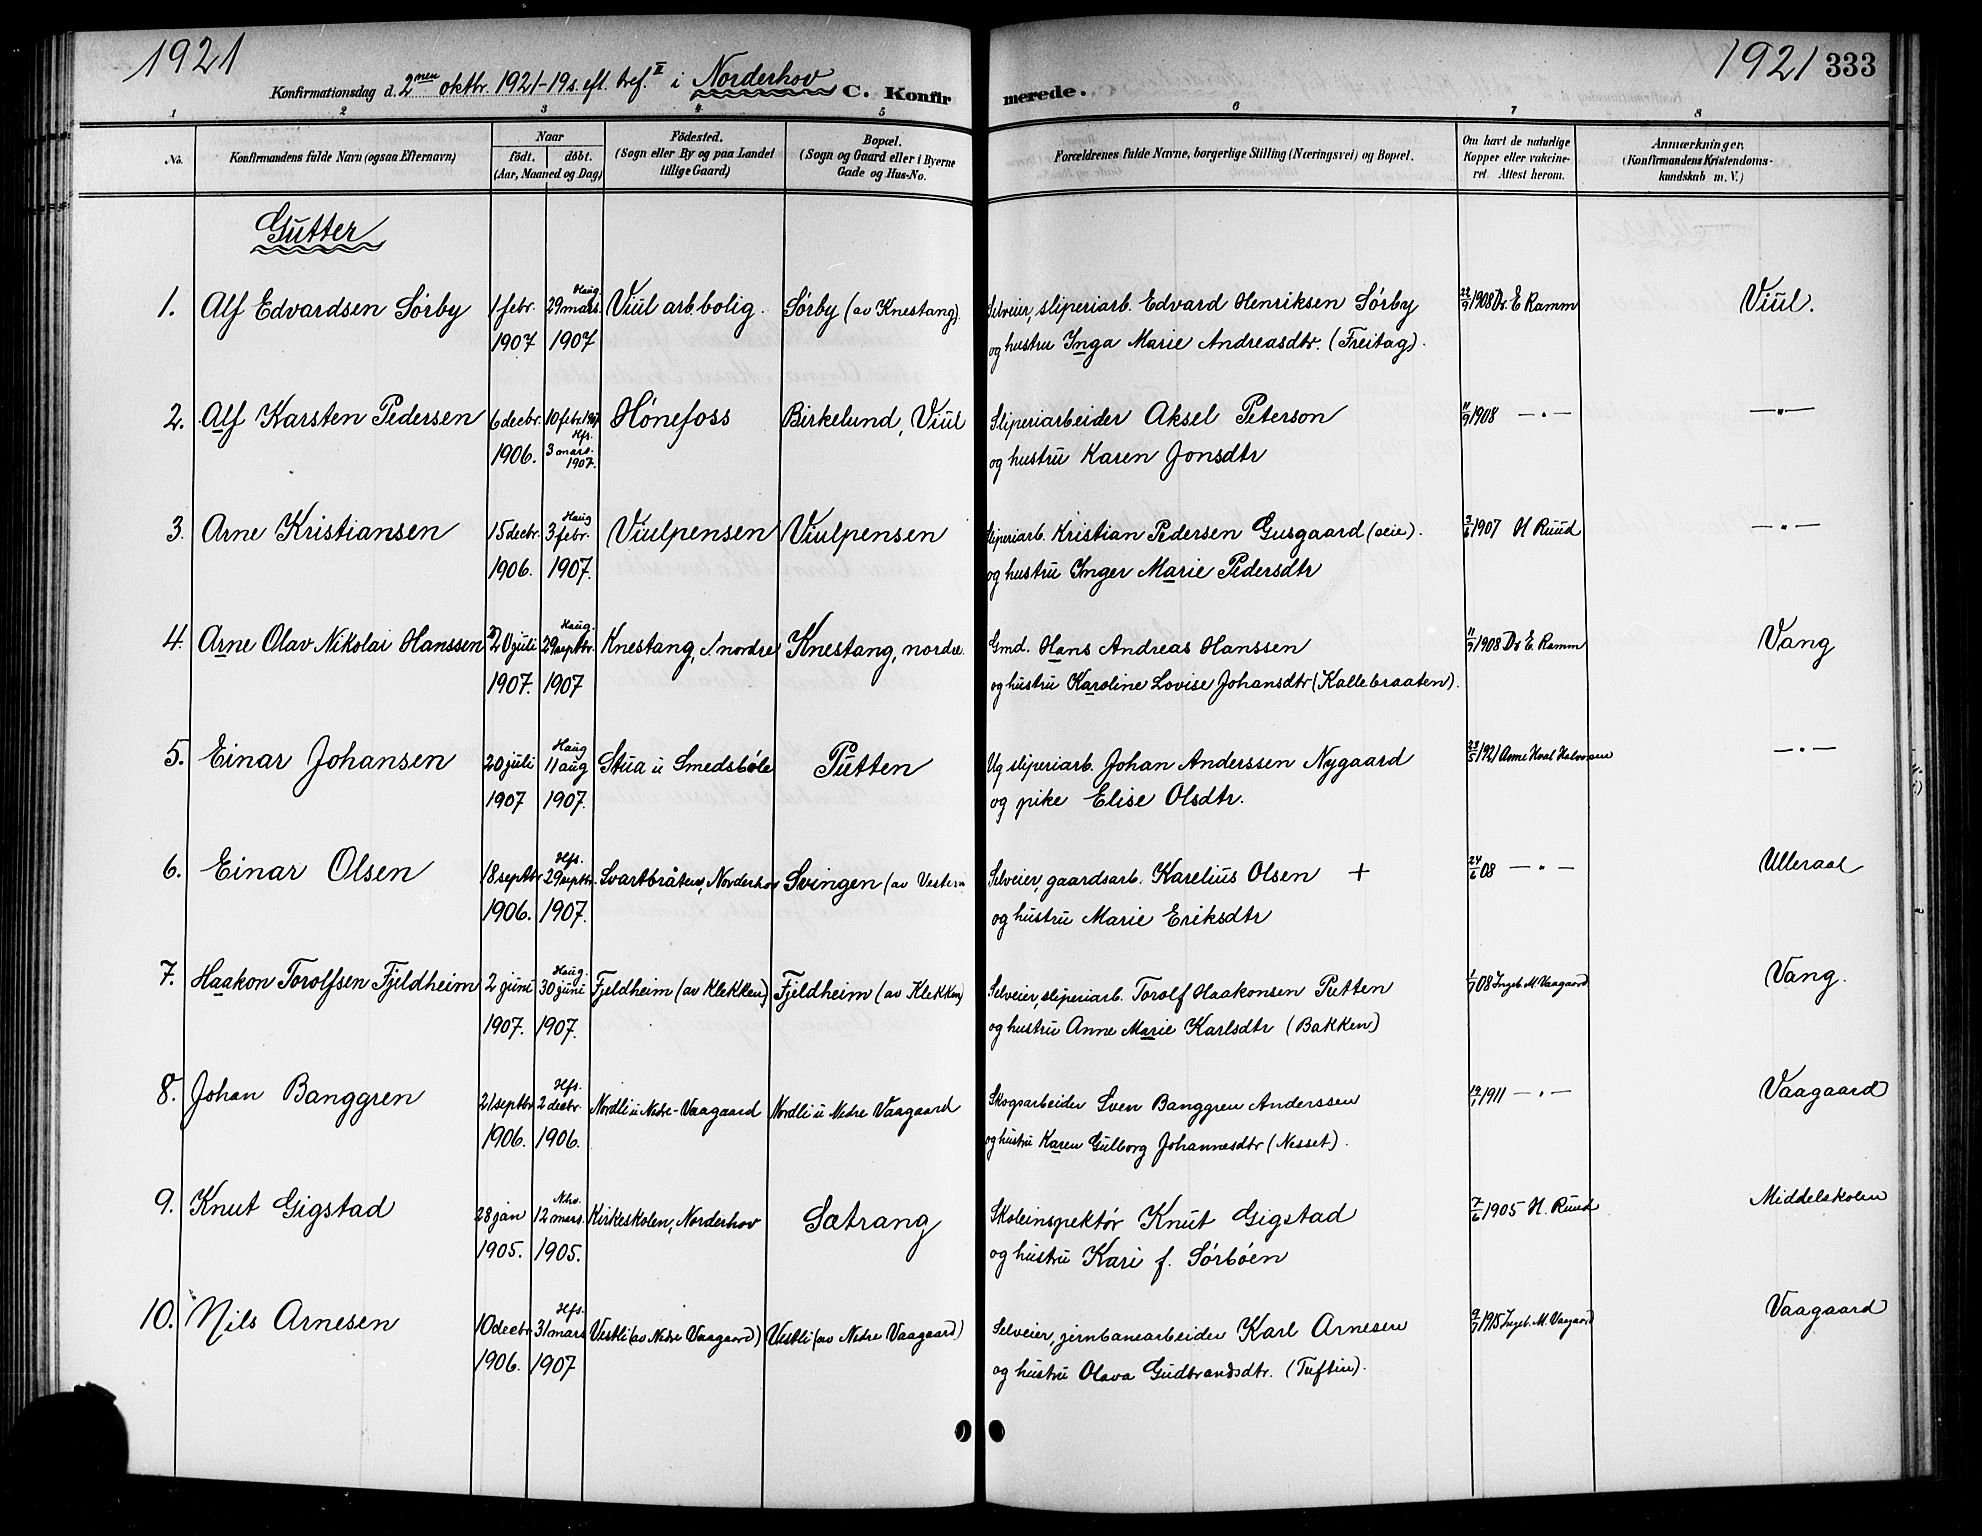 1921
1921 333
Konfirmationsdag d. 2nen oktbr. 1921 - 19 s. eft. tref. II i Norderhov C. Konfirmerede.
1 2 3 4 5 6 7 8
No. Konfirmandens fulde Navn (ogsaa Efternavn) Naar født. døbt. (Aar, Maaned og Dag) Fødested. (Sogn eller By og paa Landet tillige Gaard) Bopæl. (Sogn og Gaard eller i Byerne Gade og Hus-No. Forældrenes fulde Navne, borgerlige Stilling (Næringsvei) og Bopæl. Om havt de naturlige Kopper eller vakcineret. Attest herom. Anmærkninger. (Konfirmandens Kristendomskundskab m. V.)
Gutter
1. Alf Edvardsen Sørby 1 febr. 1907 Haug 29 mars. 1907 Viul arb.bolig. Sørby (av Knestang) Selveier, sliperiarb. Edvard Henriksen Sørby 22/9 1908 Dr. E Ramm Viul.
og hustru Inga Marie Andreasdtr. (Freitag).
2. Alf Karsten Pedersen 6 decbr. 1906. 10 febr. 1907 Hfs. 3 mars. 1907. Hønefoss Birkelund, Viul Sliperiarbeider Aksel Peterson 11/9 1908 — " — — " —
og hustru Karen Jonsdtr
3. Arne Kristiansen 15 decbr. 1906. Haug 3 febr. 1907. Viulpensen Viulpensen Sliperiarb. Kristian Pedersen Gusgaard (eie). 3/6 1907 H Ruud — " —
og hustru Inger Marie Pedersdtr
4. Arne Olav Nikolai Hanssen 20 juli 1907. Haug. 29 septbr. 1907 Knestang, nordre Knestang, nordre. Gmd. Hans Andreas Hanssen 11/9 1908 Dr E. Ramm Vang
og hustru Karoline Lovise Johansdtr (Kallebraaten).
5. Einar Johansen 20 juli 1907 Haug 11 aug 1907. Stua u Smedsbøle Putten Ug sliperiarb. Johan Anderssen Nygaard 23/5 1921 Anne Hval Halvorsen — " —
og pike Elise Olsdtr.
6. Einar Olsen 18 septbr 1906. Hfs. 29 septbr. 1907. Svartbråten, Norderhov Svingen (av Vestern Selveier, gaardsarb. Karelius Olsen + 24/6 08 — " — Ulleraal
og hustru Marie Eriksdtr
7. Haakon Torolfsen Fjeldheim 2 juni 1907. Haug. 30 juni 1907. Fjeldheim (av Klekken) Fjeldheim (av Klekken) Selveier, sliperiarb. Torolf Haakonsen Putten 1/7 08 Ingeb. M. Vaagaard Vang.
og hustru Anne Marie Karlsdtr (Bakken)
8. Johan Banggren 21 septbr 1906. Hfs. 2 decbr. 1906. Nordli u Nedre-Vaagaard Nordli u Nedre Vaagaard Skogsarbeider Sven Banggren Anderssen 19/1 1911 — " — Vaagaard
og hustru Karen Gulborg Johannesdtr (Nesset).
9. Knut Gigstad 28 jan 1905. Nhv. 12 mars. 1905. Kirkeskolen, Norderhov Sætrang Skoleinspektør Knut Gigstad 7/6 1905 H. Ruud Middelskolen
og hustru Kari f. Sørbøen
10. Nils Arnesen 10 decbr 1906. Hfs. 31 mars 1907 Vestli (av Nedre Vaagaard) Vestli (av Nedre Vaagaard) Selveier, jernbanearbeider Karl Arnesen 9/7 1915 Ingeb. M. Vaagaard Vaagaard
og hustru Olava Gudbrandsdtr. (Tuftin).